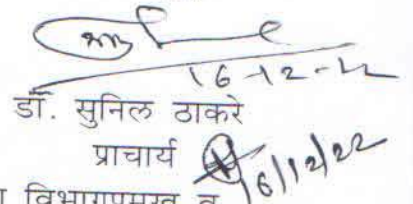 16-12-22
डॉ. सुनिल ठाकरे
प्राचार्य
16/12/22
विभागप्रमुख व